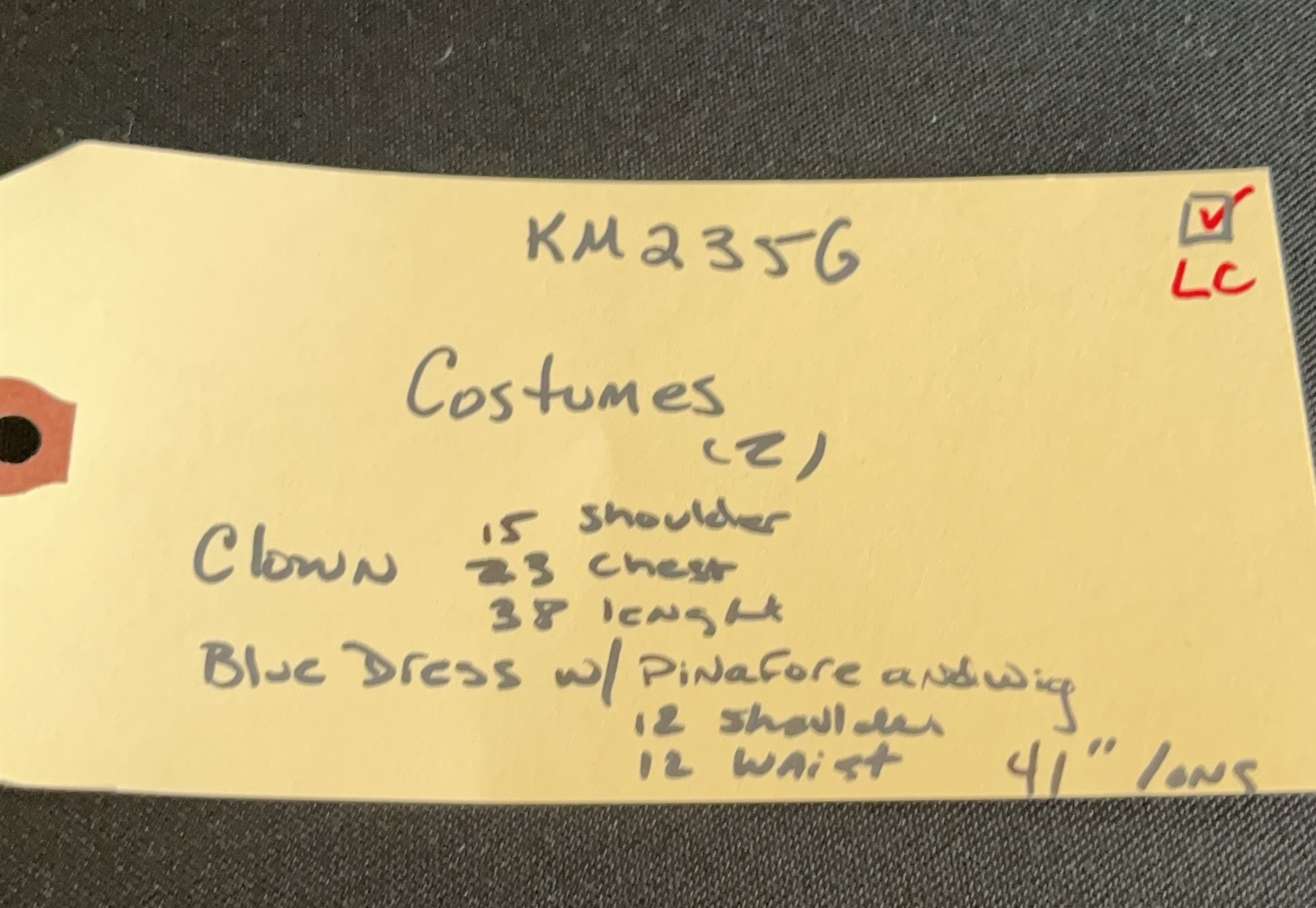 KM2356
LC
Costumes
(2)
Clown 15 shoulder
23 chest
38 lenght
Blue Dress w/ Pinafore and wig
12 shoulder
12 waist 41" long